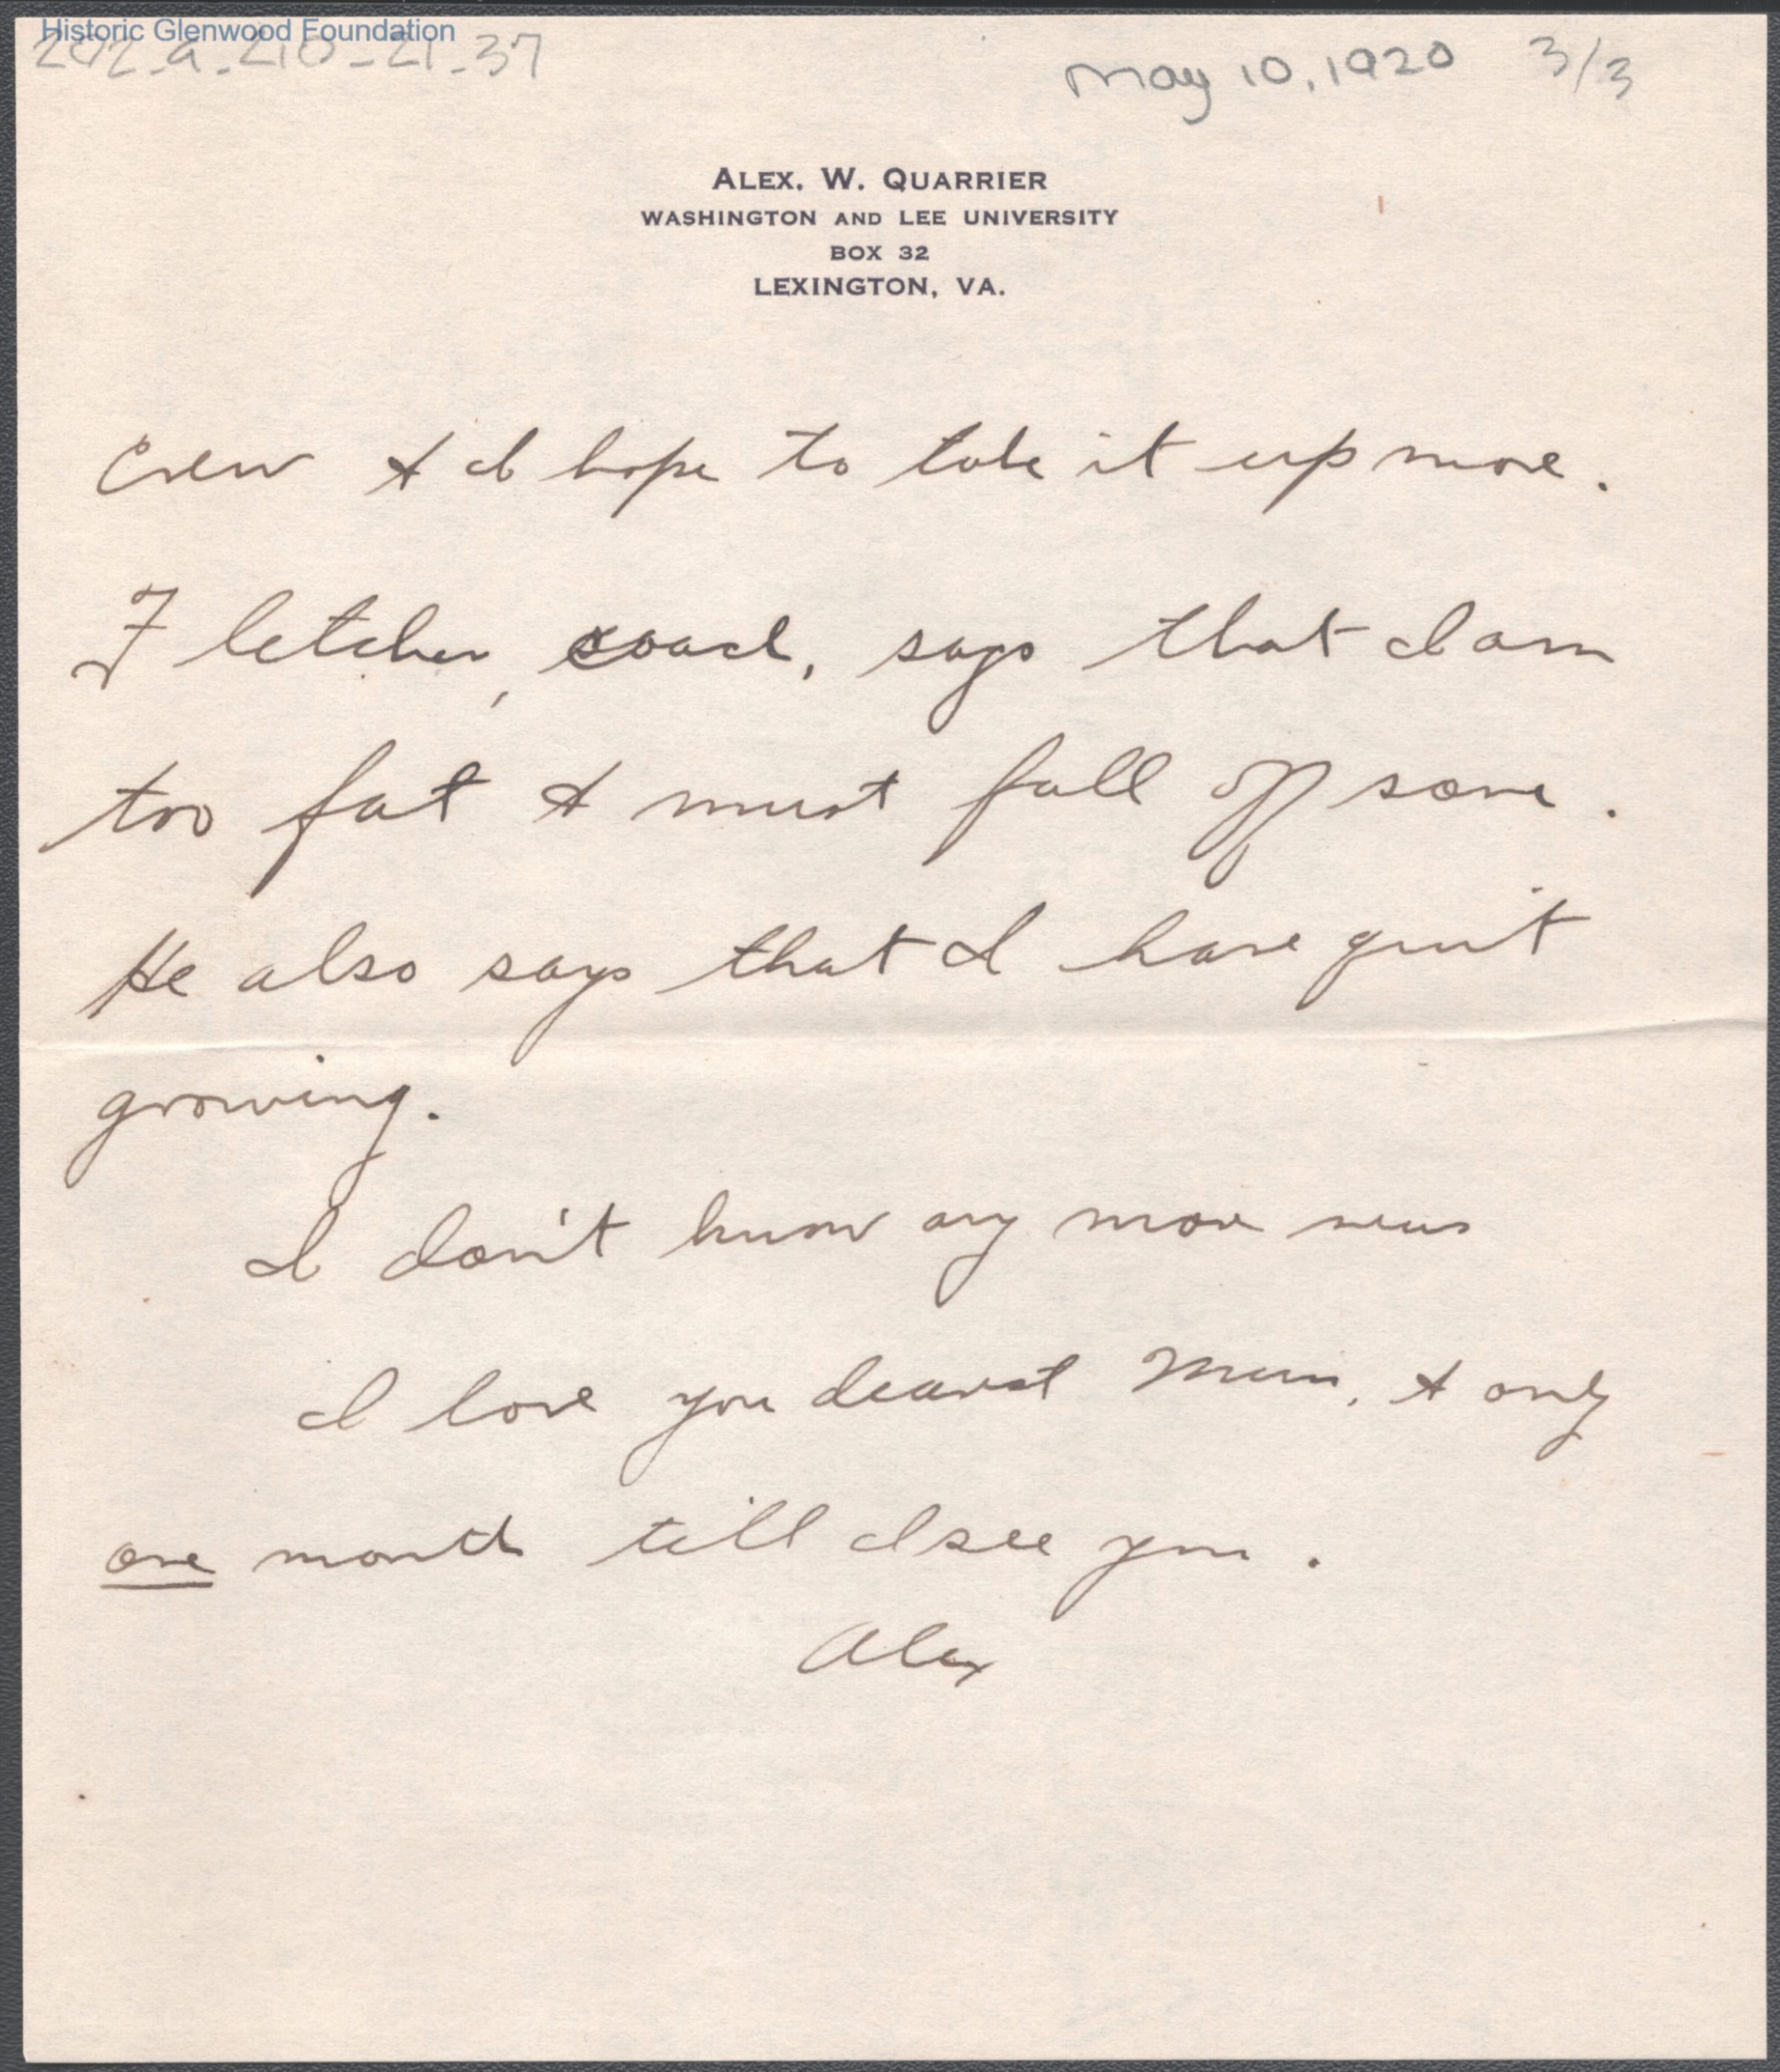 Historic Glenwood Foundation
202-a-210-21-37
May 10, 1920 3/3
ALEX. W. QUARRIER
WASHINGTON AND LEE UNIVERSITY
BOX 32
LEXINGTON, VA.
Crew & I hope to take it up more.
Fletcher, coach, says that I am
too fat & must fall off some.
He also says that I have quit
growing.
I don't know any more news
I love you dearest Mum, & only
one month till I see you.
Alex